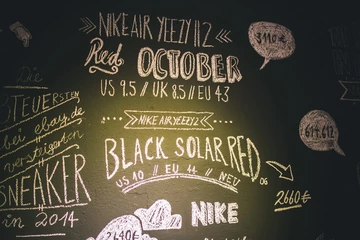 NIKE AIR YEEZY 2
Red OCTOBER
US 9.5 // UK 8.5 // EU 43
3110€
Die
TEUERSTEN
bei ebay.de
versteigerten
SNEAKER
in 2014
NIKE AIR YEEZY 2
BLACK SOLAR RED
US 10 // EU 44 // NEU
2660€
NIKE
2640€